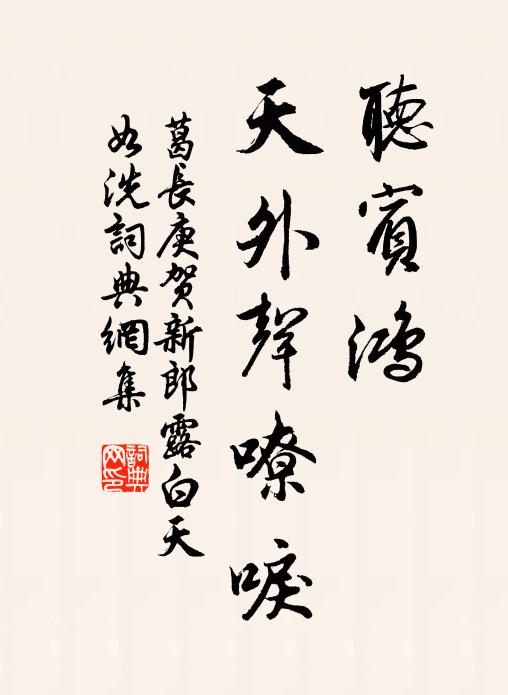 聽賓鴻
天外聲嘹唳
葛長庚賀新郎露白天
如洗詞典網集
詞典网印